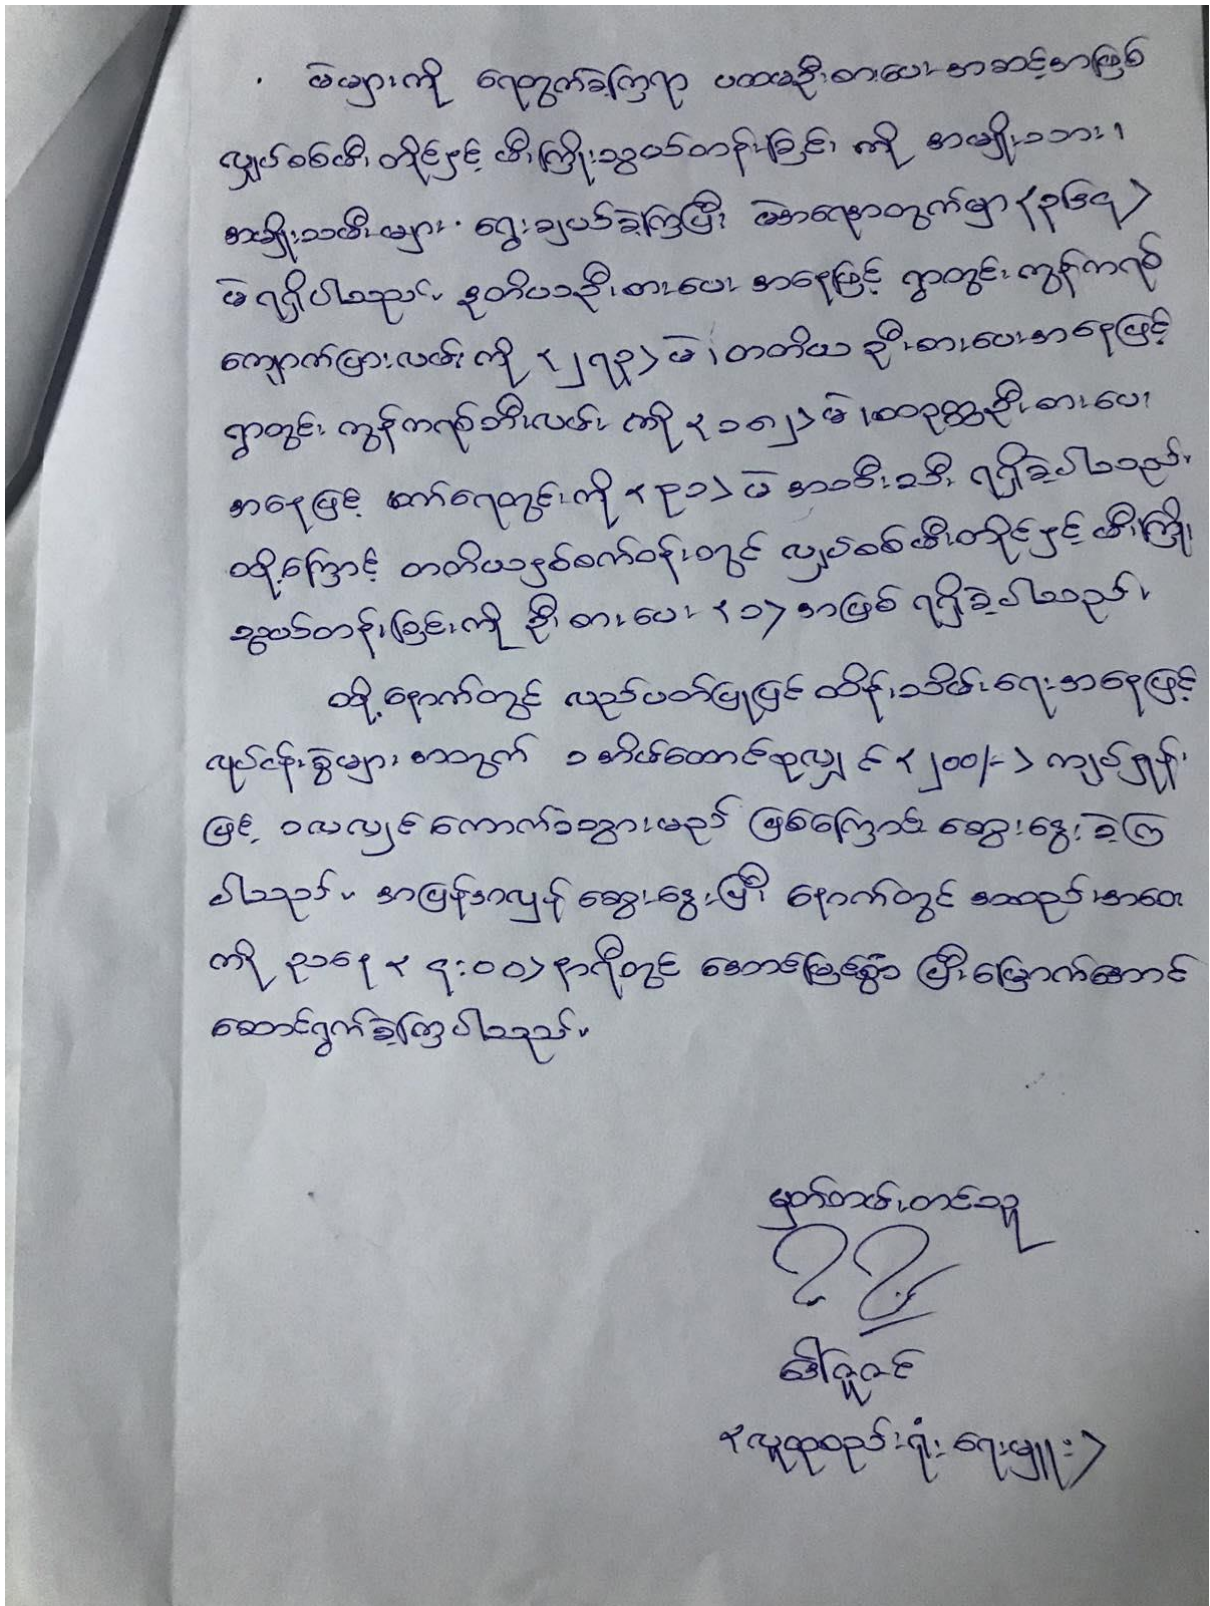 မဲများကို ရေတွက်ခဲ့ကြရာ ပထမဦးစားပေး အဆင့်အဖြစ်
လျှပ်စစ်မီး တိုင်နှင့် မီးကြိုးသွယ်တန်းခြင်း ကို အမျိုးသား၊
အမျိုးသမီးများ ရွေးချယ်ခဲ့ကြပြီး မဲအရေအတွက်မှာ <၃၆၄>
မဲ ရရှိပါသည်။ ဒုတိယဦးစားပေး အနေဖြင့် ရွာတွင်း ကွန်ကရစ်
ကျောက်ပြားလမ်း ကို <၂၇၃> မဲ၊ တတိယ ဦးစားပေးအနေဖြင့်
ရွာတွင်း ကွန်ကရစ်ဘီးလမ်း ကို <၁၈၂> မဲ၊ စတုတ္ထဦးစားပေး
အနေဖြင့် စက်ရေတွင်းကို <၉၁> မဲ အသီးသီး ရရှိခဲ့ပါသည်။
ထို့ကြောင့် တတိယနှစ်စက်ဝန်းတွင် လျှပ်စစ်မီးတိုင်နှင့် မီးကြိုး
သွယ်တန်းခြင်းကို ဦးစားပေး <၁> အဖြစ် ရရှိခဲ့ပါသည်။
ထို့နောက်တွင် လည်ပတ်ပြုပြင် ထိန်းသိမ်းရေးအနေဖြင့်
လုပ်ငန်းခွဲများ အတွက် ၁ အိမ်ထောင်စုလျှင် <၂၀၀/-> ကျပ်နှုန်း
ဖြင့် ၁လလျှင် ကောက်ခံသွားမည် ဖြစ်ကြောင်း ဆွေးနွေးခဲ့ကြ
ပါသည်။ အပြန်အလှန် ဆွေးနွေးပြီး နောက်တွင် အစည်းအဝေး
ကို ညနေ <၄:၀၀> နာရီတွင် အောင်မြင်စွာ ပြီးမြောက်အောင်
ဆောင်ရွက်ခဲ့ကြပါသည်။
မှတ်တမ်းတင်သူ
ဒေါ်ဇူဇင်
<လူထုစည်းရုံးရေးမှူး>